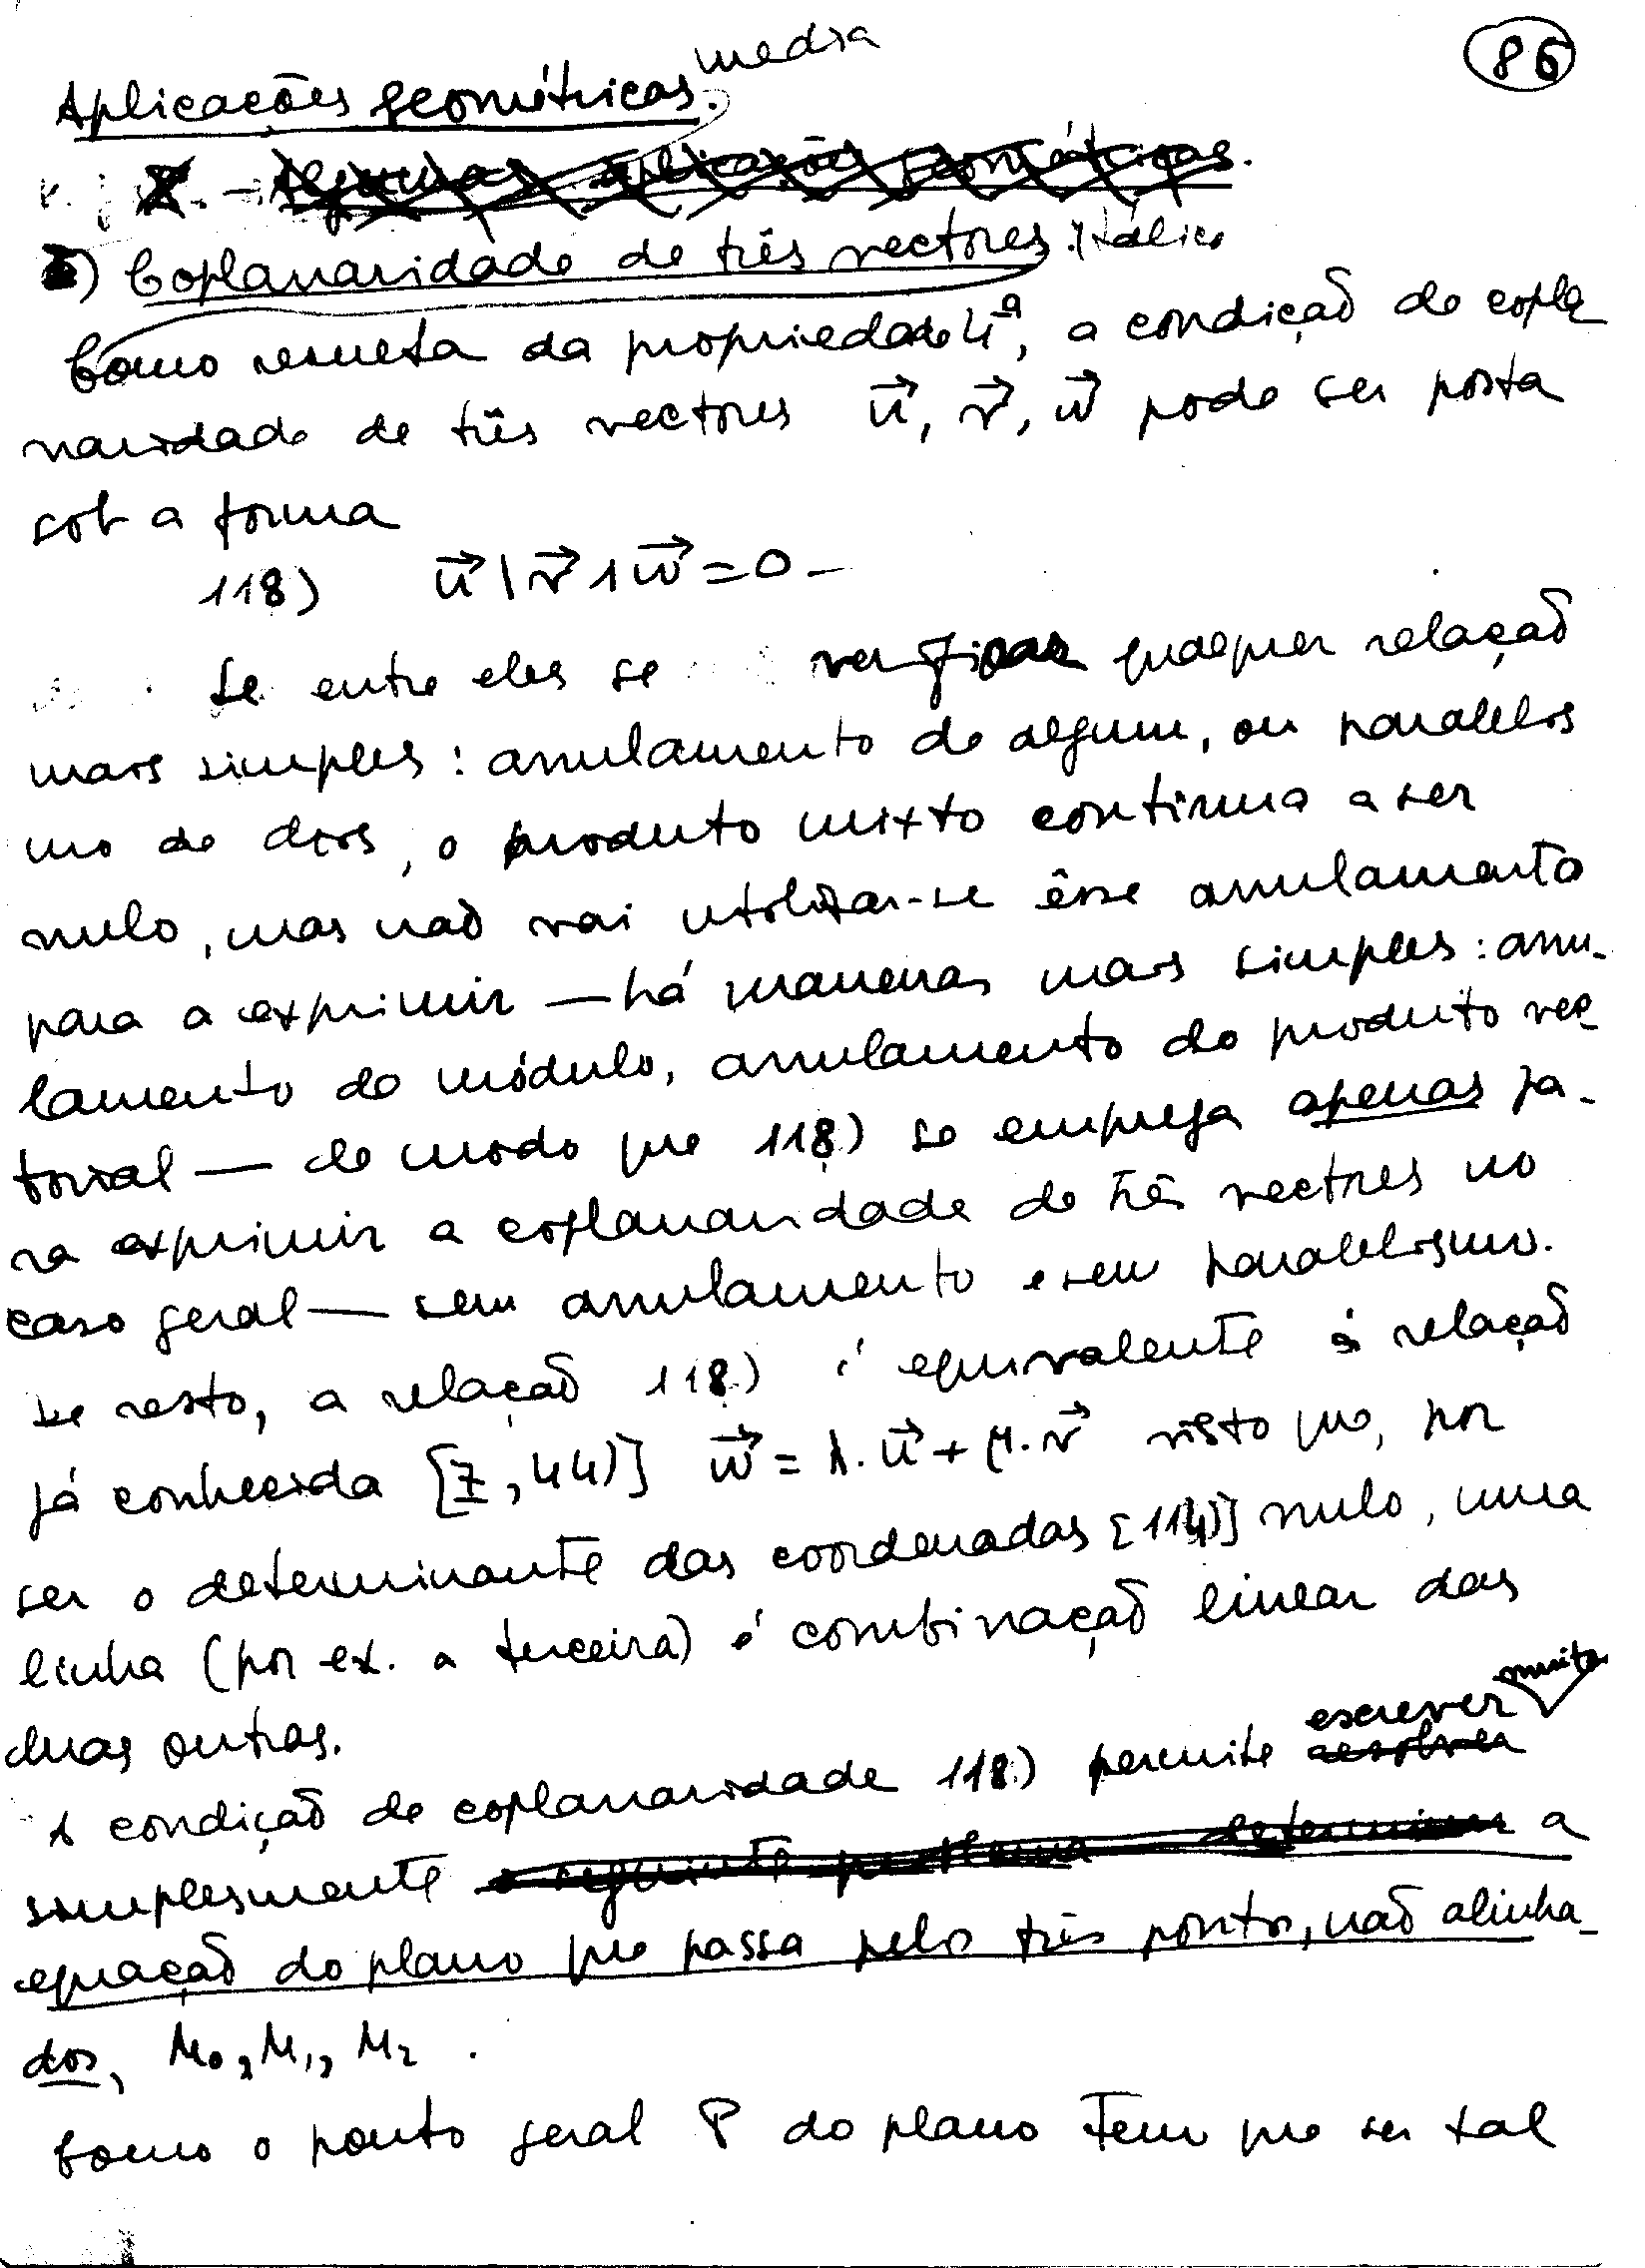 86
Aplicações geométricas. media
Algumas aplicações geométricas.
) Coplanaridade de três vectores. itálico
Como resulta da propriedade 4ª, a condição de copla
naridade de três vectores u⃗, v⃗, w⃗ pode ser posta
sob a forma
118) u⃗ | v⃗ ∧ w⃗ = 0 –
Se entre eles se verificar qualquer relação
mais simples: anulamento de algum, ou paralelis
mo de dois, o produto mixto continua a ser
nulo, mas não vai utilizar-se êsse anulamento
para a exprimir — há maneiras mais simples: anu-
lamento do módulo, anulamento do produto vec
torial — de modo que 118) se emprega apenas pa-
ra exprimir a coplanaridade de três vectores no
caso geral — sem anulamento e sem paralelismo.
De resto, a relação 118) é equivalente à relação
já conhecida [I, 44)] w⃗ = λ. u⃗ + μ. v⃗ visto que, por
ser o determinante das coordenadas [114)] nulo, uma
linha (por ex. a terceira) é combinação linear das
duas outras.
A condição de coplanaridade 118) permite resolver escrever muito
simplesmente o seguinte problema determinar a
equação do plano que passa pelos três pontos, não alinha-
dos, M₀, M₁, M₂.
Como o ponto geral P do plano tem que ser tal